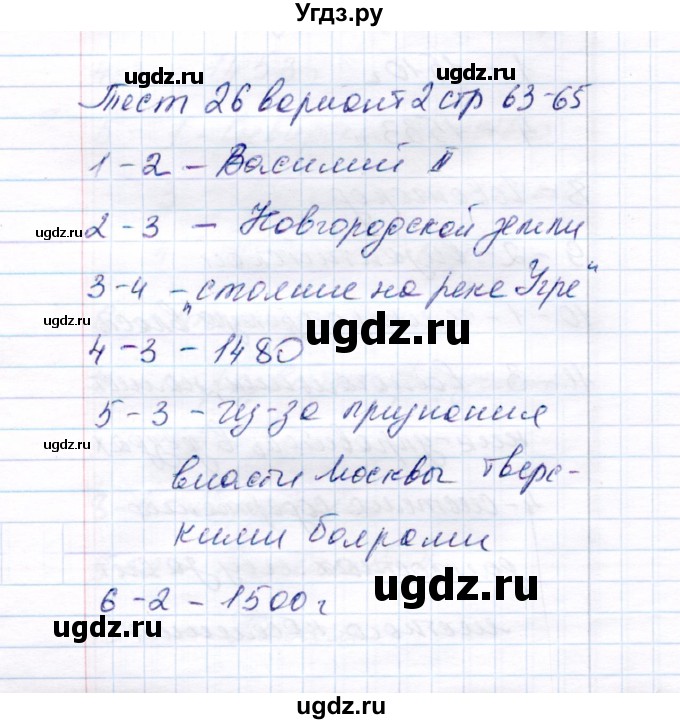 Угдз.ру
ugdz.ru
Тест 26 вариант 2 стр 63-65
ugdz.ru
1 - 2 - Василий II
ugdz.ru
2 - 3 - Новгородской земли
3 - 4 - „стояние на реке Угре“
ugdz.ru
ugdz.ru
4 - 3 - 1480
5 - 3 - из-за признания
ugdz.ru
ugdz.ru
власти Москвы Тверс-
кими боярами
ugdz.ru
6 - 2 - 1500 г
ugdz.ru
ugdz.ru
ugdz.ru
ugdz.ru